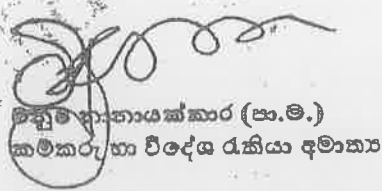 නායක්කාර (පා.ම.)
කම්කරු හා විදේශ රැකියා අමාත්‍ය